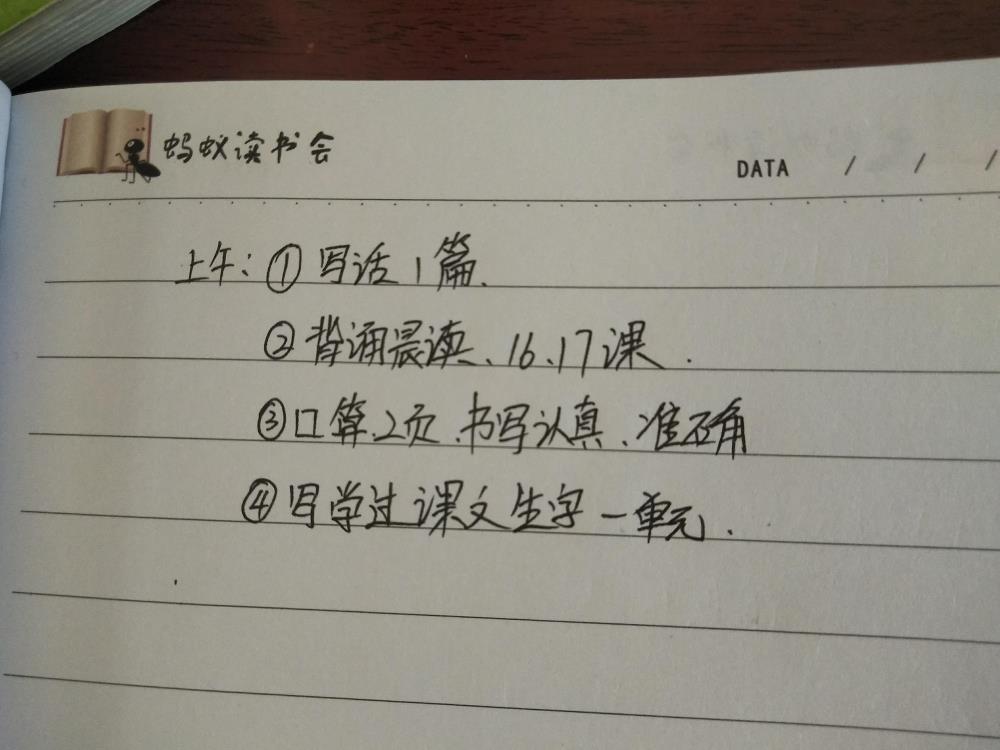 蚂蚁读书会
DATA / / /
上午：①写话1篇.
②背诵晨读、16、17课.
③口算2页、书写认真、准确
④写学过课文生字一单元.